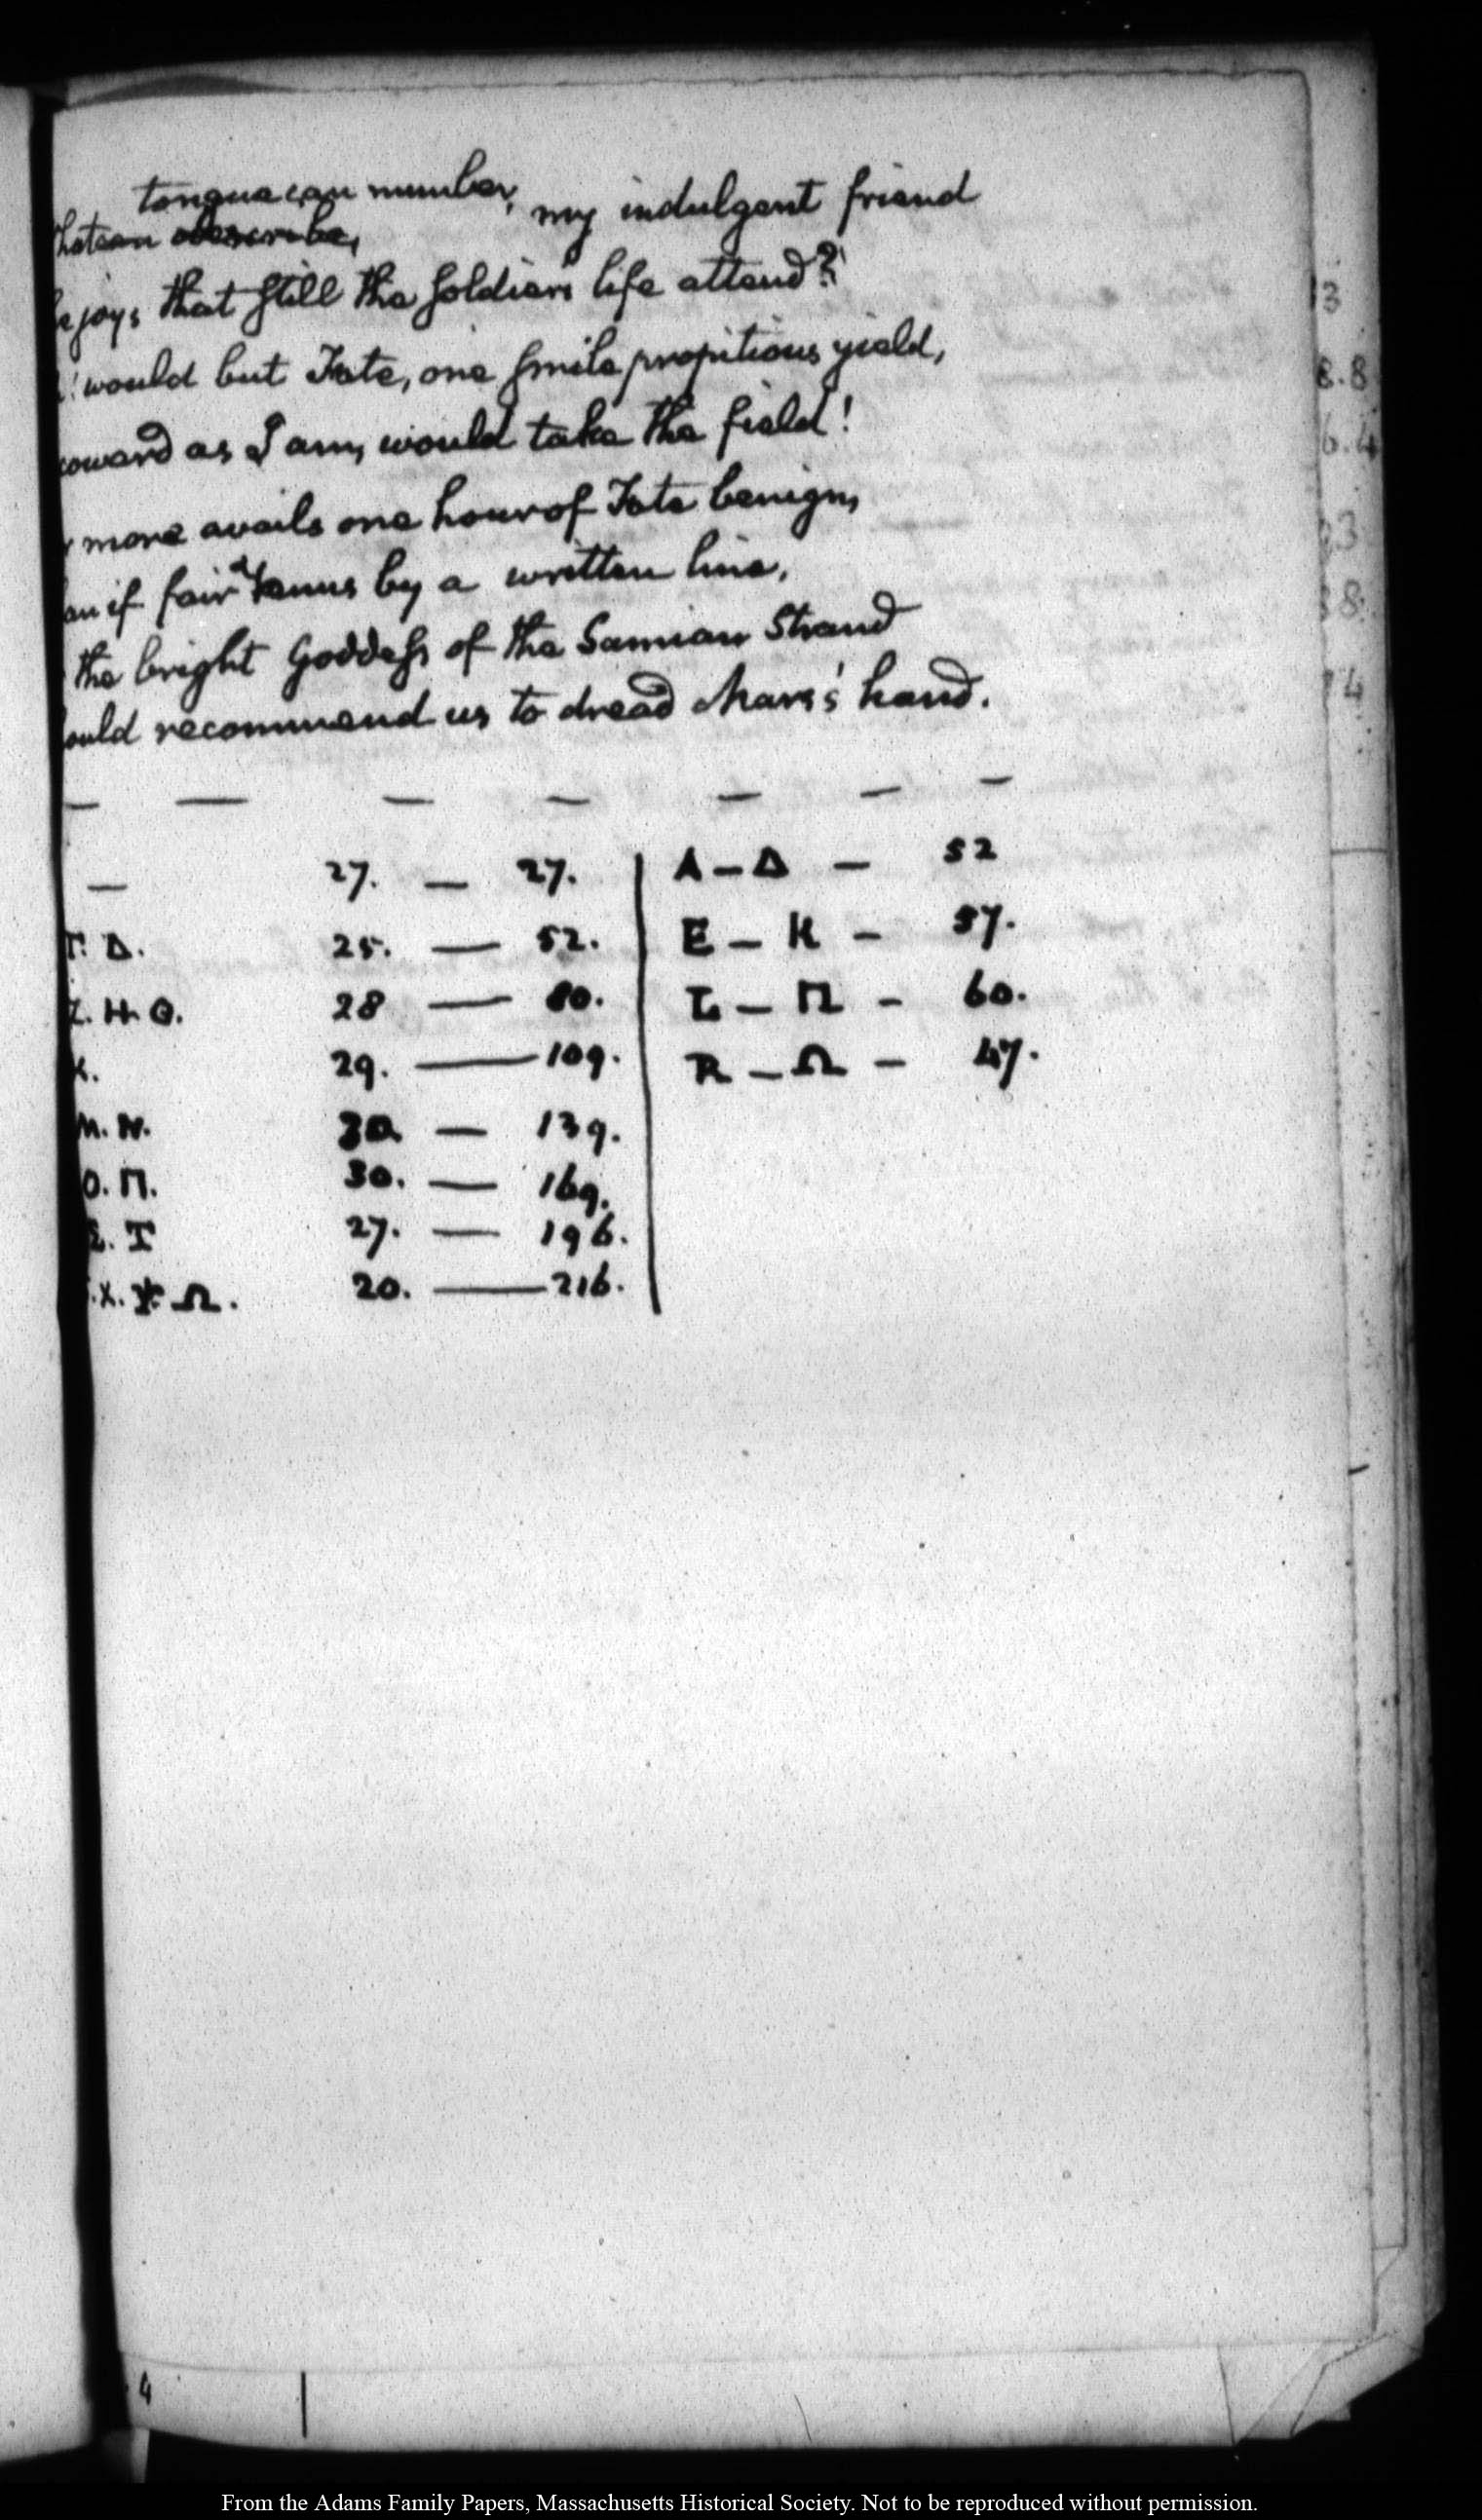 tongue can number,
my indulgent friend
describe,
joys that still the soldier's life attend?
would but Fate, one smile propitious yield,
coward as I am, would take the field!
more avails one hour of Fate benign,
if fair Venus by a written line,
the bright Goddess of the Samian Strand
ould recommend us to dread Mars's hand.
— — — — — — —
— 27. — 27. | A — Δ — 52
Γ. Δ. 25. — 52. | E — K — 57.
Z. H. Θ. 28 — 80. | L — Π — 60.
K. 29. — 109. | R — Ω — 47.
M. N. 30. — 139.
O. Π. 30. — 169.
Σ. T 27. — 196.
X. Ψ. Ω. 20. — 216.
3
8.8
6.4
3
8
4
4
From the Adams Family Papers, Massachusetts Historical Society. Not to be reproduced without permission.